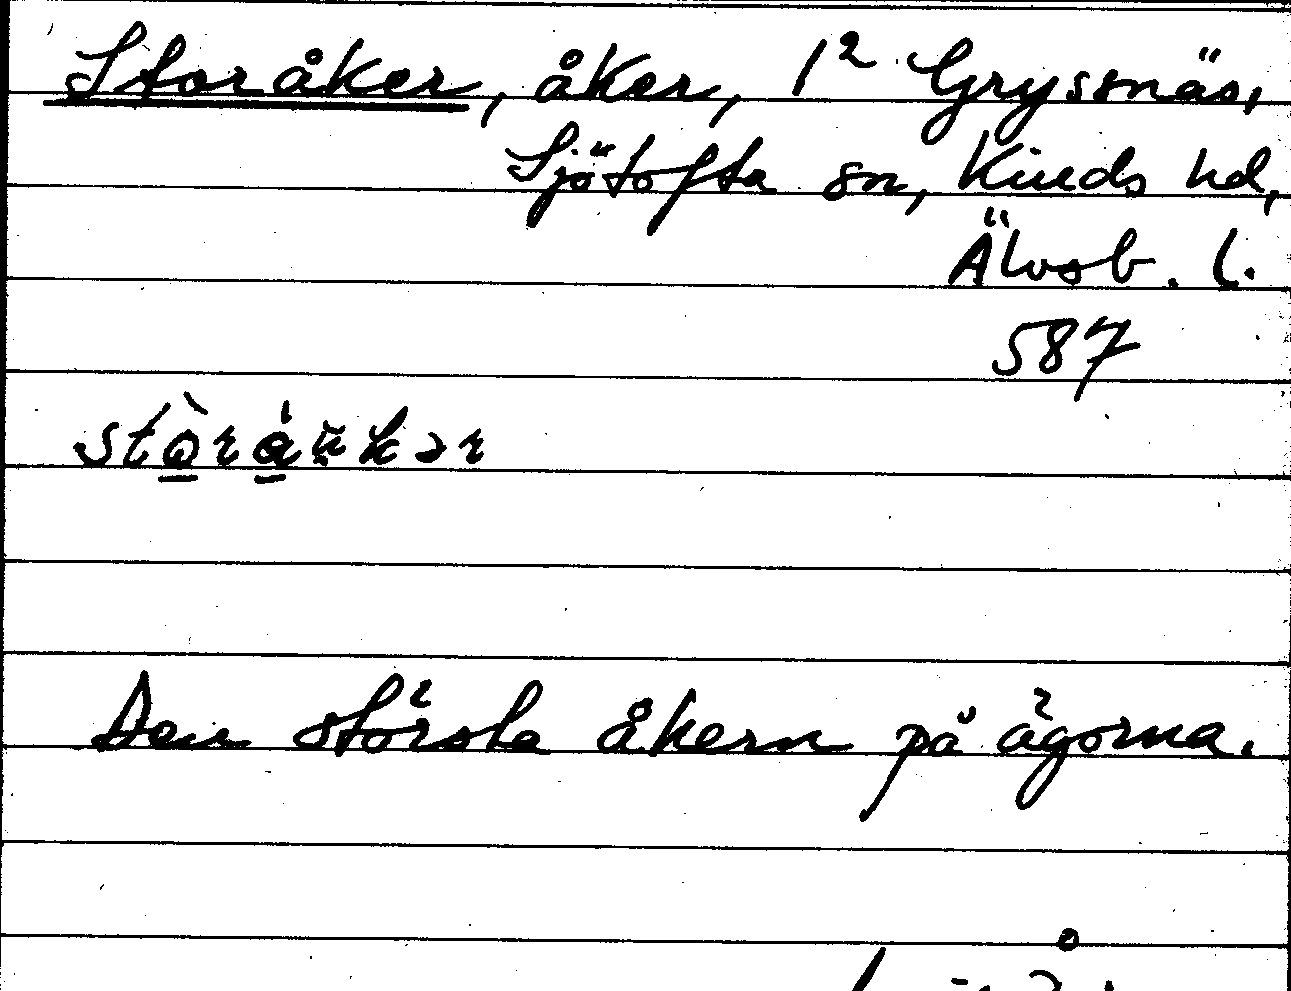 Storåker, åker, 1² Gryssnäs,
Sjötofta sn, Kinds hd,
Älvsb. l.
587
Den största åkern på ägorna.